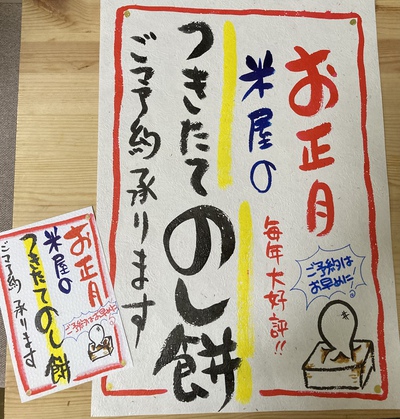 お正月
米屋の
つきたて のし餅
ご予約 承ります
毎年大好評!!
ご予約は
お早めに!
お正月
米屋の
つきたてのし餅
ご予約 承ります
ご予約はお早めに!